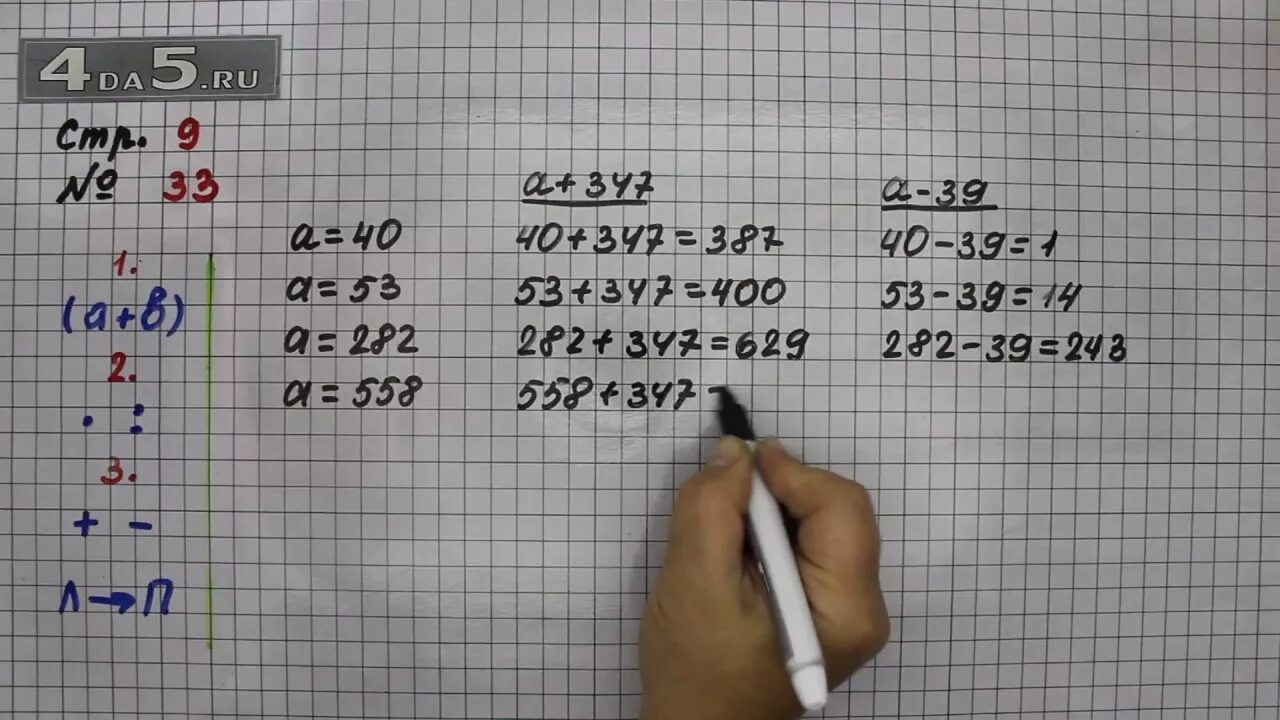 4DA5.RU
Стр. 9
№ 33
1.
(а+в)
2.
· :
3.
+ −
Л→П
a=40
a=53
a=282
a=558
a+347
40+347=387
53+347=400
282+347=629
558+347
a-39
40-39=1
53-39=14
282-39=243